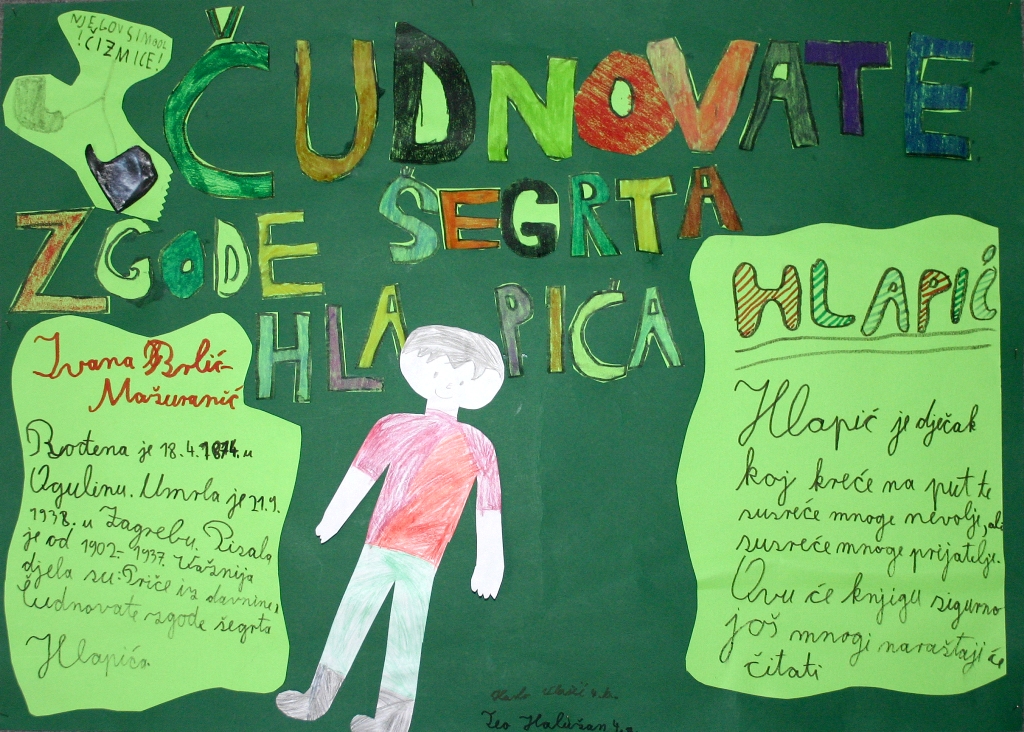 NJEGOV SIMBOL
! ČIZMICE!
ČUDNOVATE
ZGODE ŠEGRTA
HLAPIĆA
Ivana Brlić-
Mažuranić
Rođena je 18.4.1874. u
Ogulinu. Umrla je 21.9.
1938. u Zagrebu. Pisala
je od 1902.- 1937. Važnija
djela su: Priče iz davnine,
Čudnovate zgode šegrta
Hlapića.
HLAPIĆ
Hlapić je dječak
koj kreće na put te
susreće mnoge nevolje, al
susreće mnoge prijatelje.
Ovu će knjigu sigurno
još mnogi naraštaji će
čitati
Teo